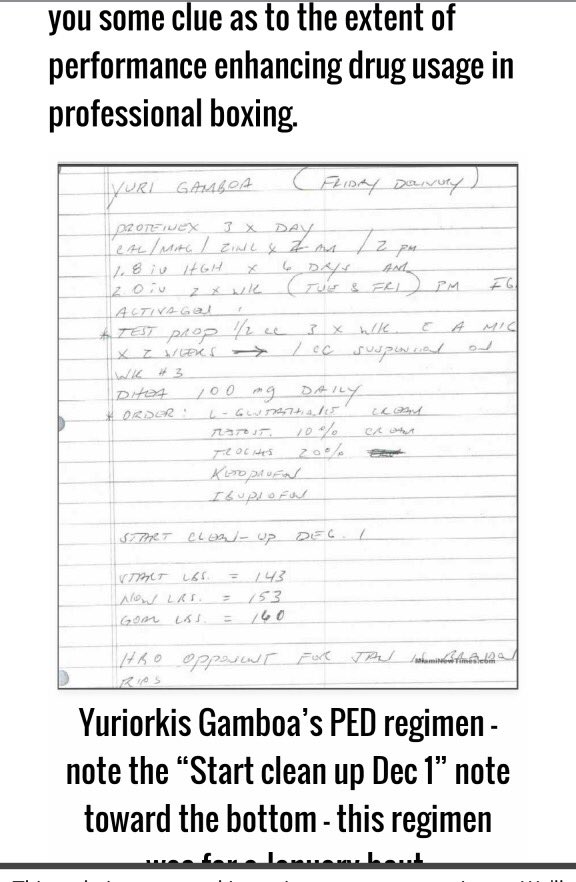 you some clue as to the extent of
performance enhancing drug usage in
professional boxing.
YURI GAMBOA (FRIDAY DELIVERY)
PROTEINEX 3 X DAY
CAL/MAG/ZINC 2 AM / 2 PM
1.8 iu HGH x 6 DAYS AM
20 iu 2 x WK (TUE & FRI) PM
ACTIVAGEL
* TEST PROP 1/2 CC 3 x WK. MIC
x 2 WEEKS → 1 CC
WK #3
DHEA 100 mg DAILY
* ORDER: CREAM
10% CREAM
TROCHES 20%
KETOPROFEN
IBUPROFEN
START CLEAN-UP DEC. 1
START LBS. = 143
NOW LBS. = 153
GOAL LBS. = 160
HBO OPPONENT FOR JAN IS
RIOS
MiamiNewTimes.com
Yuriorkis Gamboa’s PED regimen -
note the “Start clean up Dec 1” note
toward the bottom - this regimen
was for a January bout